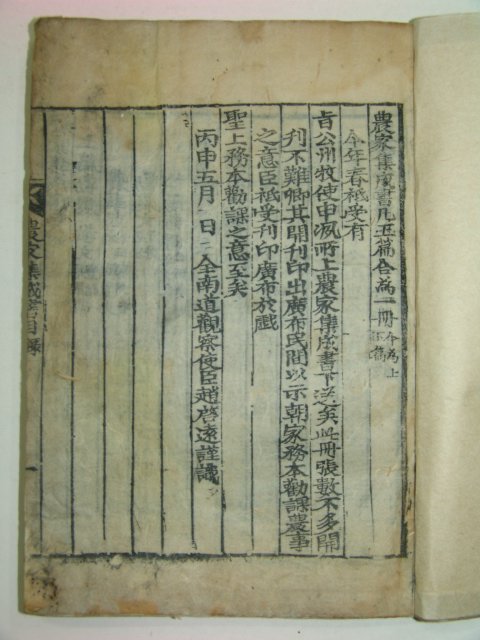 農家集成書凡五篇合為一冊今為上下篇
今年春祗受有
旨公州牧使申洬所上農家集成書下送矣此冊張數不多開
刊不難卿其開刊印出廣布民間以示朝家務本勸課農事
之意臣祗受刊印廣布於戲
聖上務本勸課之意至矣
丙申五月 日 全南道觀察使臣趙啓遠謹識
農家集成書目錄